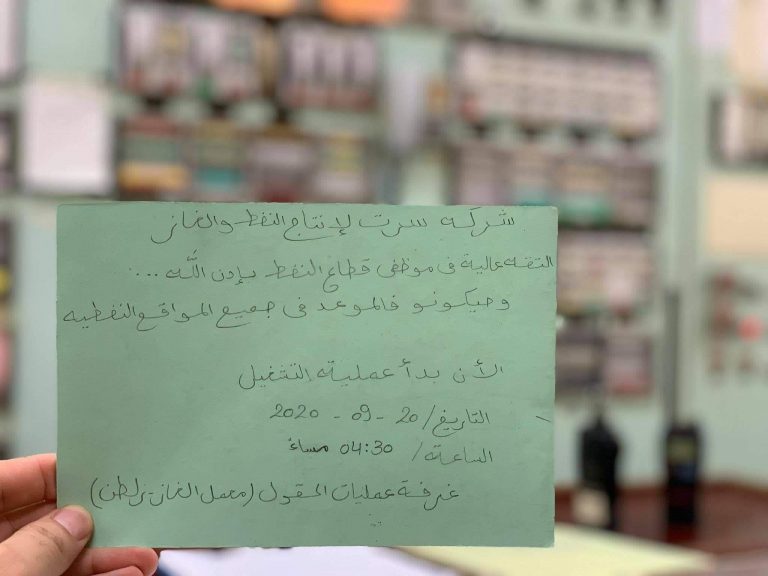 شركه سرت لإنتاج النفط والغاز
التقه عالية في موظفي قطاع النفط بإدن اللّه ...
وحيكونو فالموعد في جميع المواقع النفطيه
الأن بدأ عملية التشغيل
التاريخ/ 20 - 09 - 2020
الساعة/ 04:30 مساءً
غرفة عمليات الحقول (معمل الغاز-زلطن)